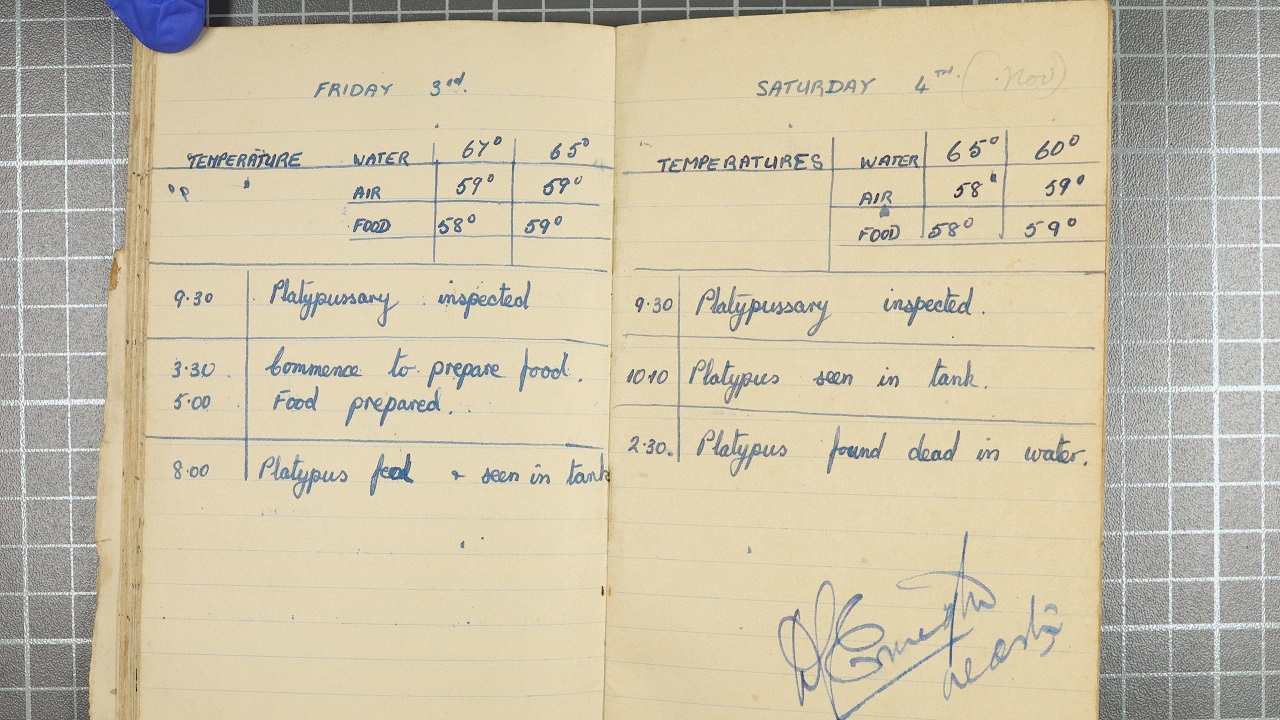 FRIDAY 3rd.
TEMPERATURE WATER 67° 65°
AIR 59° 59°
FOOD 58° 59°
9.30 Platypussary inspected
3.30 Commence to prepare food.
5.00 Food prepared.
8.00 Platypus fed & seen in tank
SATURDAY 4TH. (Nov)
TEMPERATURES WATER 65° 60°
AIR 58° 59°
FOOD 58° 59°
9.30 Platypussary inspected.
10.10 Platypus seen in tank.
2.30. Platypus found dead in water.